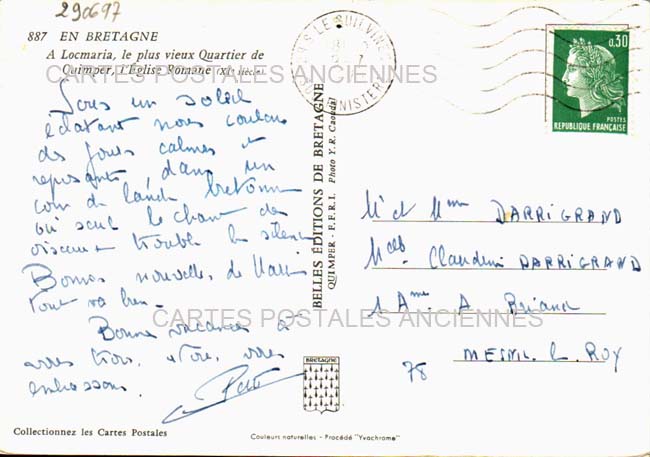 290697
887 EN BRETAGNE
A Locmaria, le plus vieux Quartier de
Quimper, l'Église Romane (XIe siècle)
CARTES POSTALES ANCIENNES
Sous un soleil
éclatant nous coulons
des jours calmes et
reposants, dans un
coin de lande bretonne
où seul le chant des
oiseaux trouble le silence
Bonnes nouvelles de
tout va bien.
Bonnes vacances à
vous trois,
embrassons.
Collectionnez les Cartes Postales
BELLES ÉDITIONS DE BRETAGNE
QUIMPER - E.F.B.I. Photo Y. R. Caoudal
BRETAGNE
Couleurs naturelles - Procédé "Yvachrome"
LE GUILVINEC
FINISTERE
0,30
POSTES
REPUBLIQUE FRANÇAISE
Mr et Mme DARRIGRAND
Claudine DARRIGRAND
A Briand
CARTES POSTALES ANCIENNES
MESNIL le ROY
78